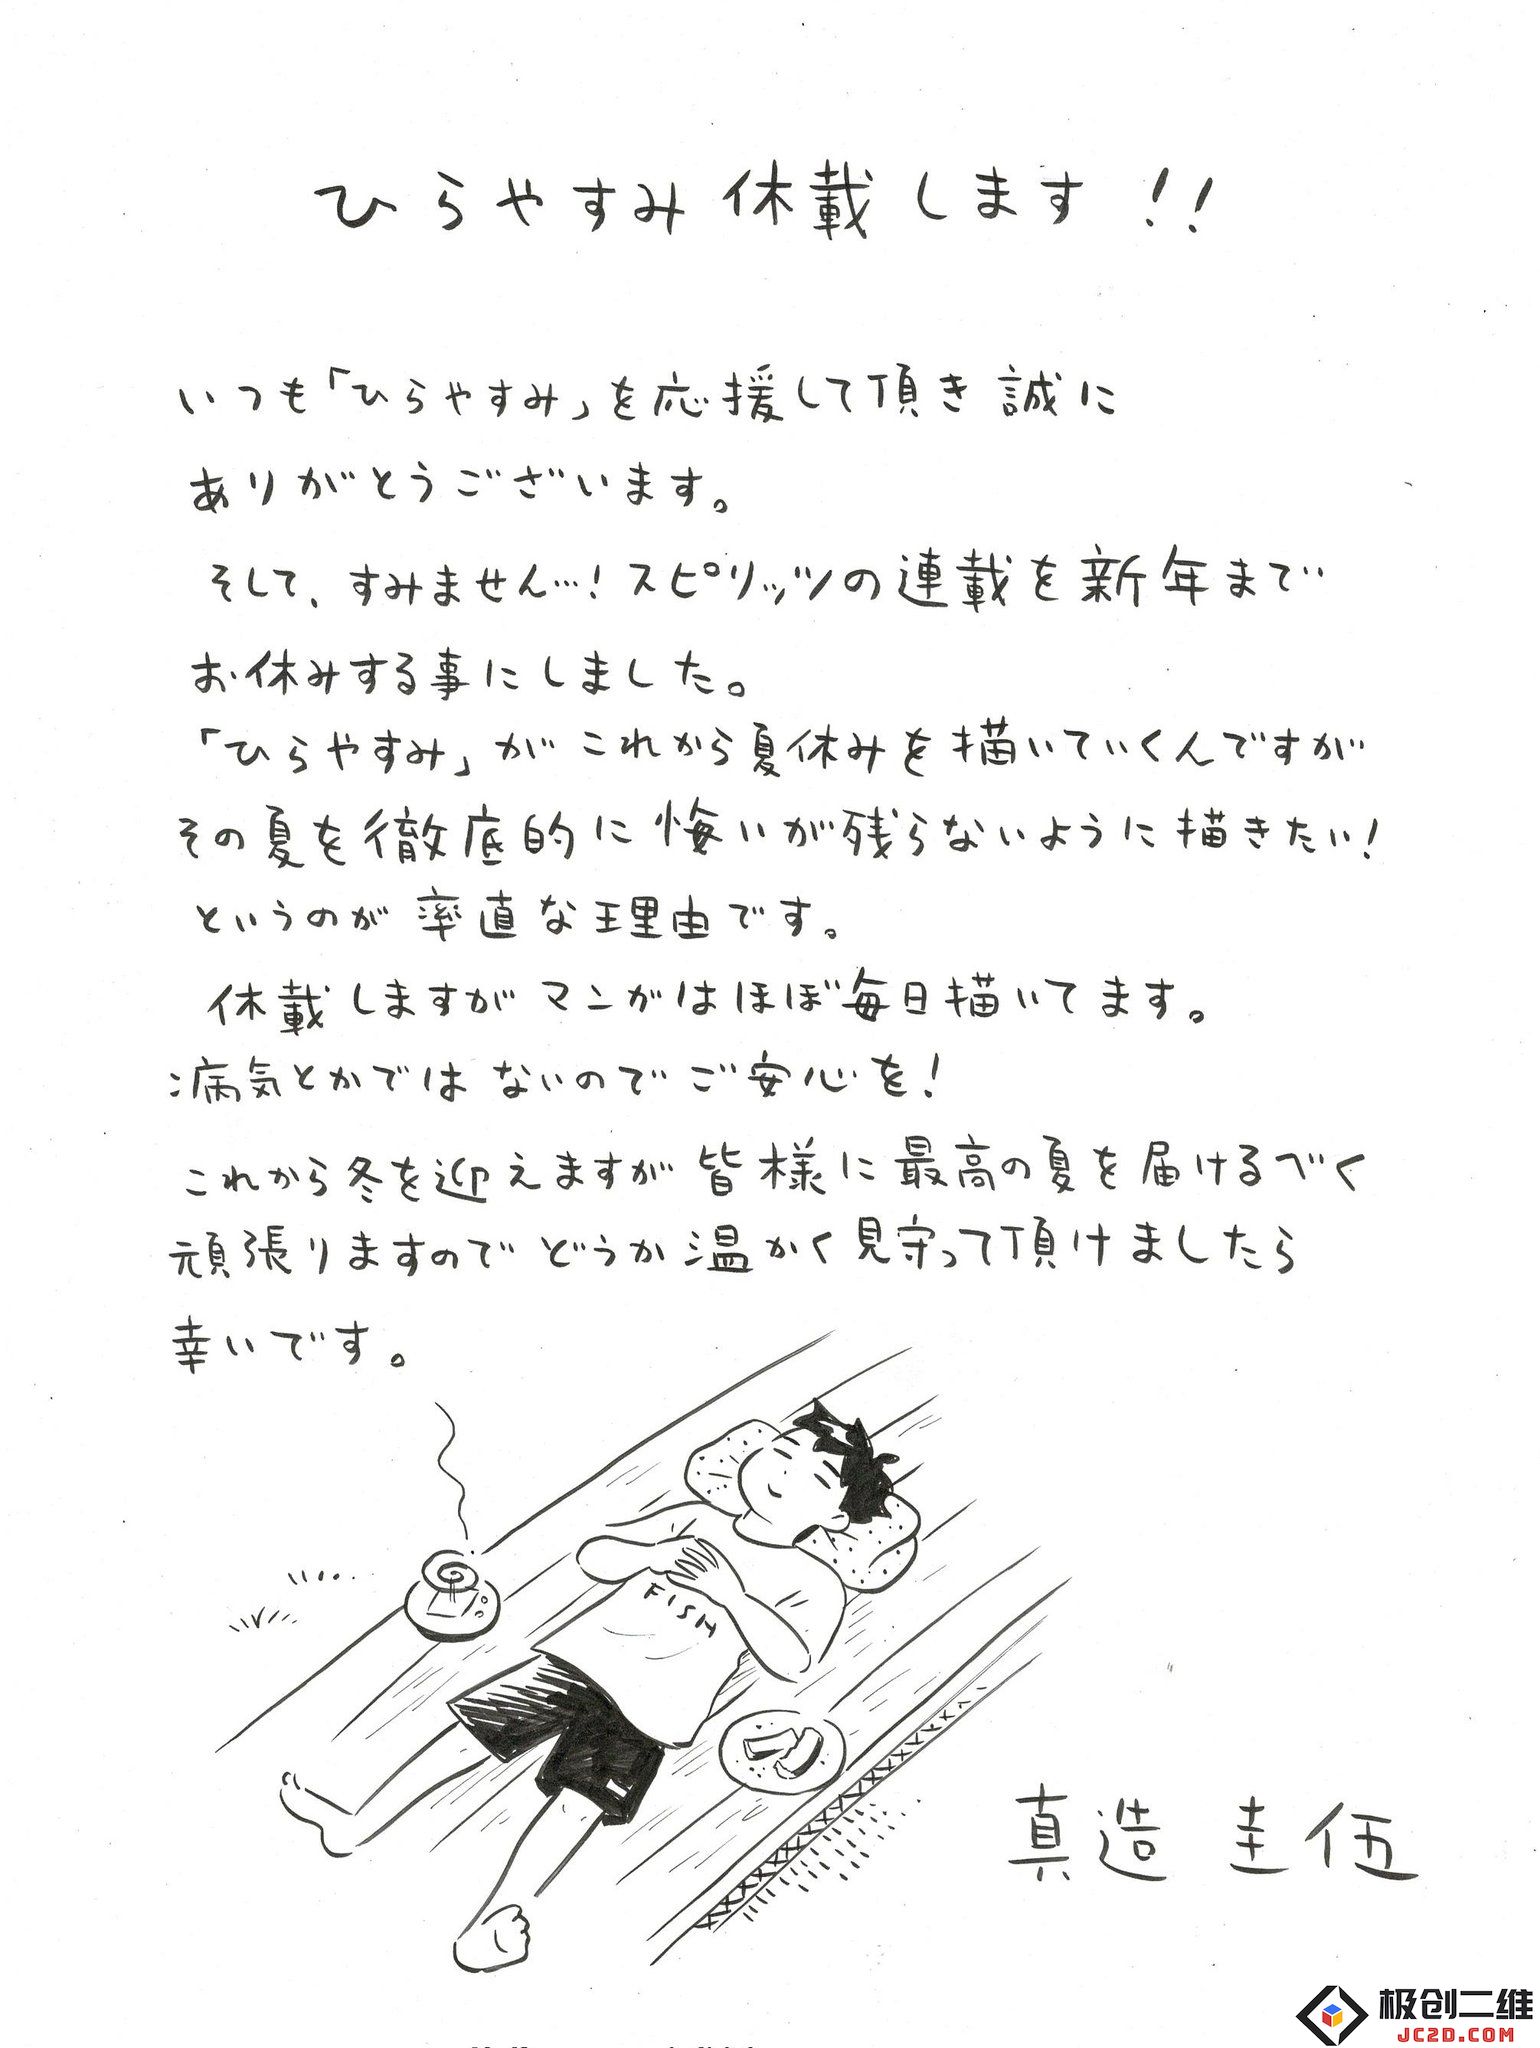 ひらやすみ 休載します!!
いつも「ひらやすみ」を応援して頂き 誠に
ありがとうございます。
そして、すみません…!スピリッツの連載を新年まで
お休みする事にしました。
「ひらやすみ」がこれから夏休みを描いていくんですが
その夏を徹底的に悔いが残らないように描きたい!
というのが率直な理由です。
休載しますがマンガはほぼ毎日描いてます。
病気とかではないのでご安心を!
これから冬を迎えますが皆様に最高の夏を届けるべく
頑張りますのでどうか温かく見守って頂けましたら
幸いです。
FISH
真造 圭伍
极创二维
JC2D.COM